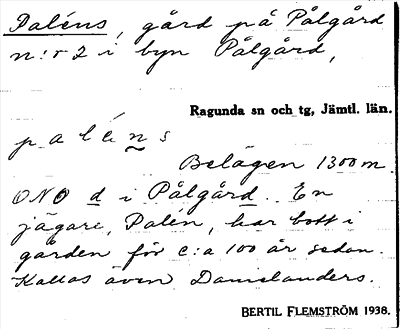 Paléns, gård på Pålgård
n:r 2 i byn Pålgård,
Ragunda sn och tg, Jämtl. län.
p a l é n s
Belägen 1300 m
ONO d i Pålgård. En
jägare, Palén, har bott i
gården för c:a 100 år sedan.
Kallas även Damslanders.
BERTIL FLEMSTRÖM 1938.